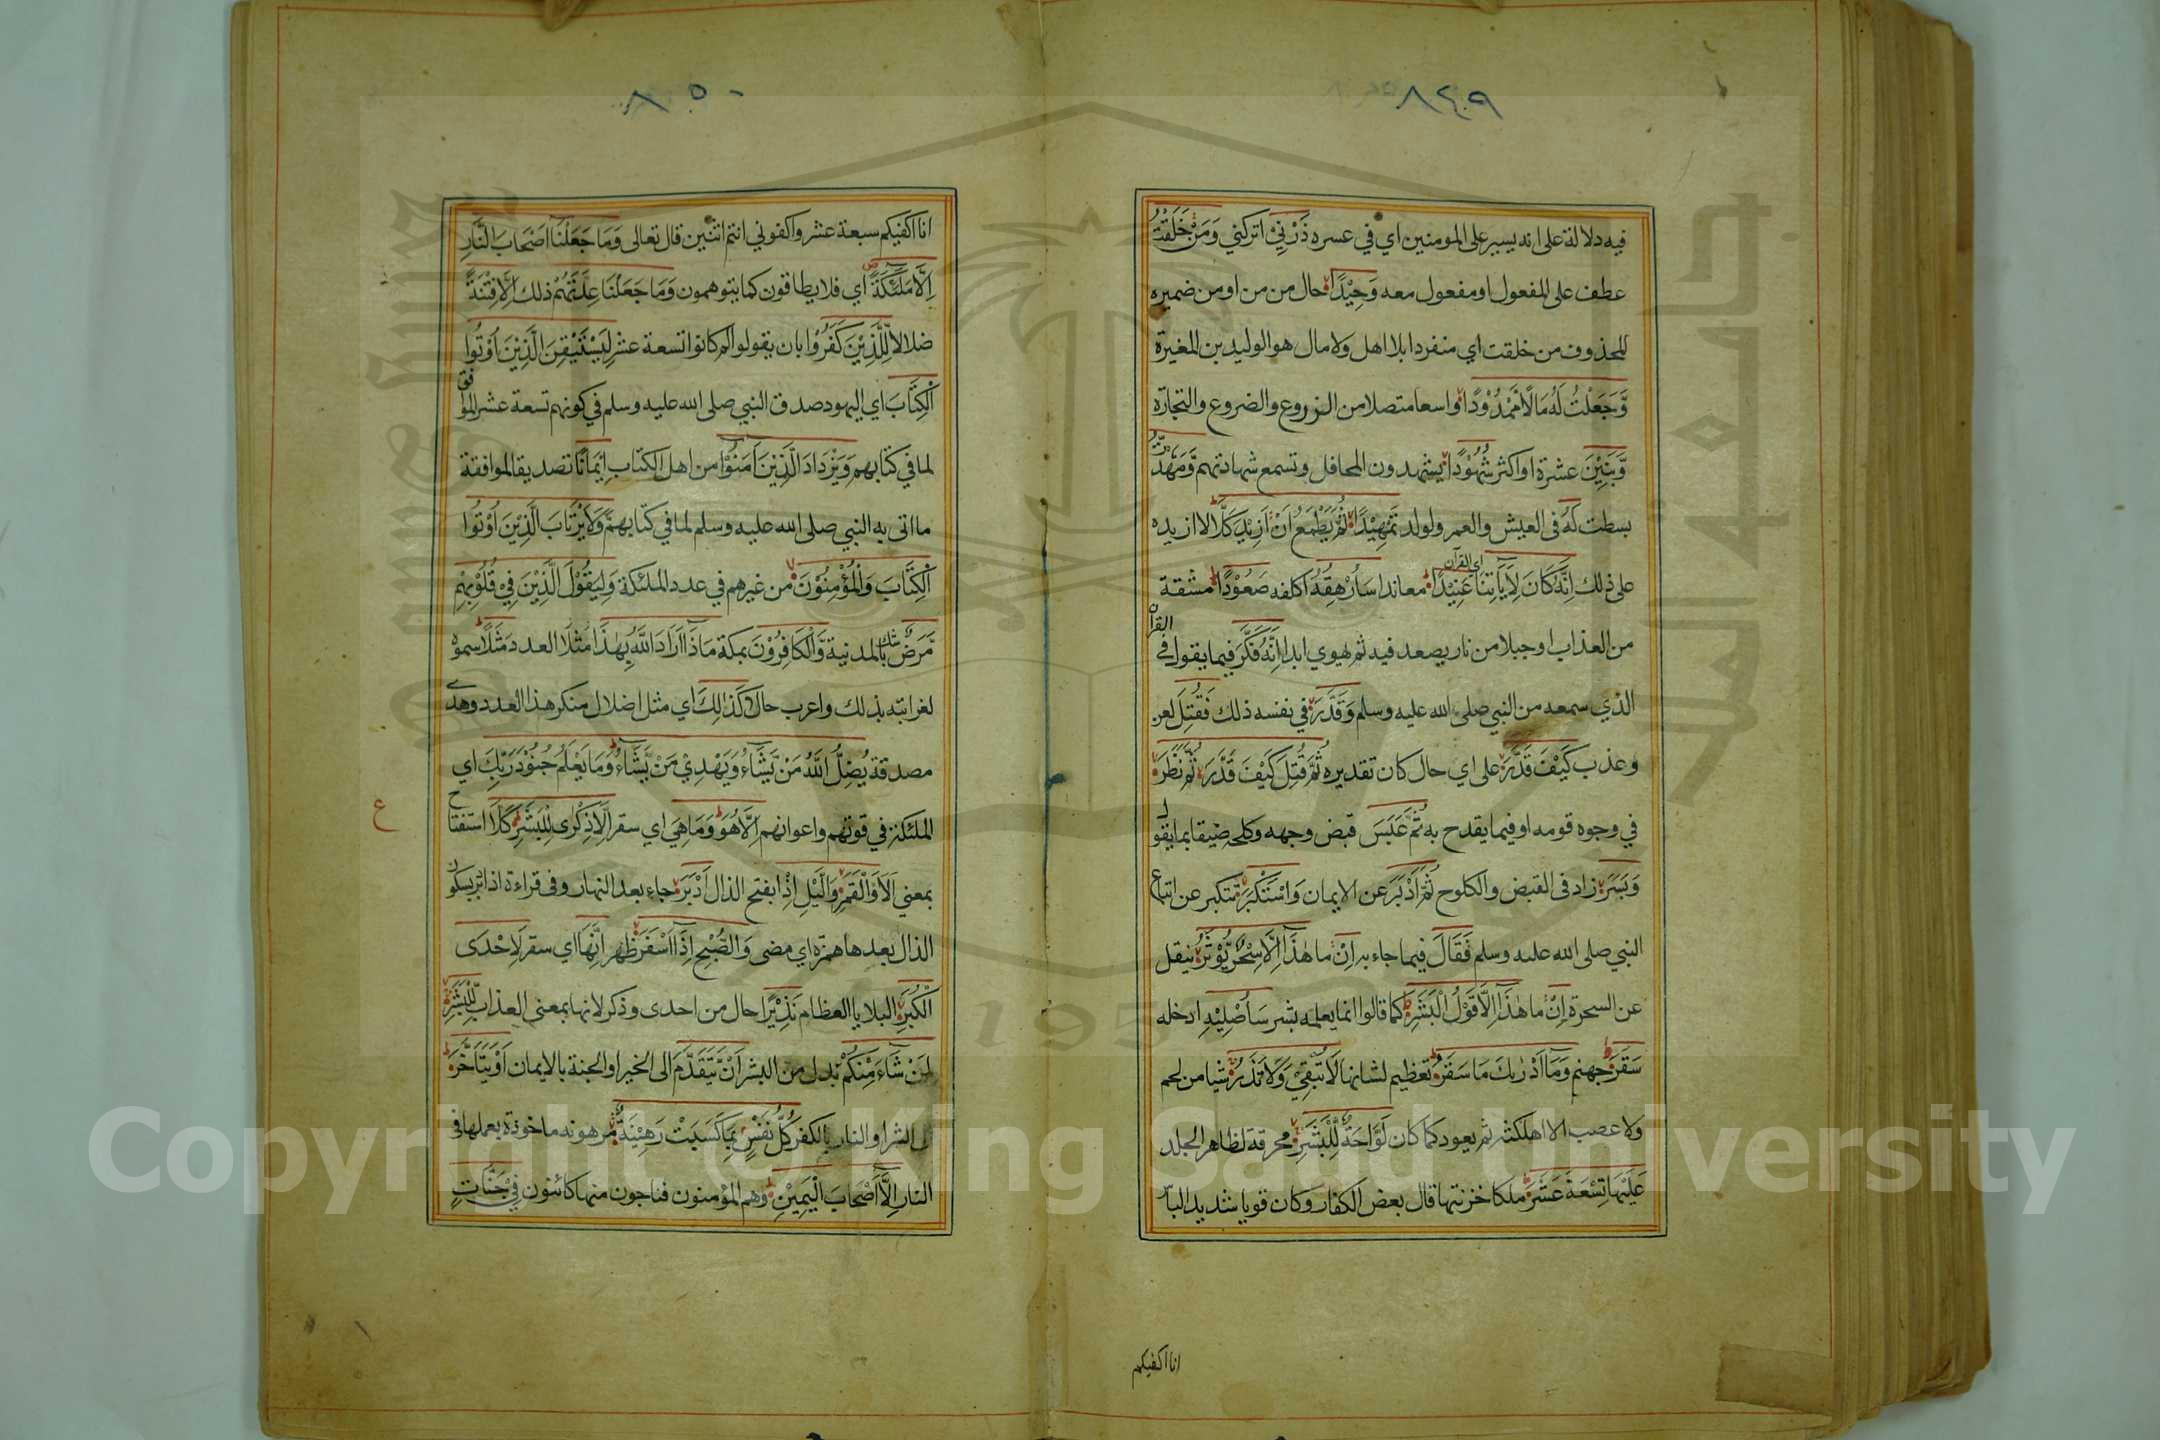 ٨٤٩
فيه دلالة على انه يسير على المومنين اي في عسره ذَرْنِيْ اتركني وَمَنْ خَلَقْتُ
عطف على المفعول او مفعول معه وَحِيْدًا حال من من او من ضميره
المحذوف من خلقت اي منفردا بلا اهل ولا مال هو الوليد بن المغيرة
وَّجَعَلْتُ لَهُ مَالًا مَّمْدُوْدًا واسعا متصلا من الزروع والضروع والتجارة
وَّبَنِيْنَ عشرة او اكثر شُهُوْدًا يشهدون المحافل وتسمع شهادتهم وَّمَهَّدْتُّ
بسطت لَهٗ في العيش والعمر والولد تَمْهِيْدًا ثُمَّ يَطْمَعُ اَنْ اَزِيْدَ كَلَّا لا ازيده
على ذلك اِنَّهٗ كَانَ لِاٰيَاتِنَا اي القرآن عَنِيْدًا معاندا سَاُرْهِقُهٗ اكلفه صَعُوْدًا مشقة
من العذاب او جبلا من نار يصعد فيه ثم يهوي ابدا اِنَّهٗ فَكَّرَ فيما يقول في القرآن
الذي سمعه من النبي صلى الله عليه وسلم وَقَدَّرَ في نفسه ذلك فَقُتِلَ لعن
وعذب كَيْفَ قَدَّرَ على اي حال كان تقديره ثُمَّ قُتِلَ كَيْفَ قَدَّرَ ثُمَّ نَظَرَ
في وجوه قومه او فيما يقدح به ثُمَّ عَبَسَ قبض وجهه وكلحه ضيقا بما يقول
وَبَسَرَ زاد في القبض والكلوح ثُمَّ اَدْبَرَ عن الايمان وَاسْتَكْبَرَ تكبر عن اتباع
النبي صلى الله عليه وسلم فَقَالَ فيما جاء به اِنْ ما هٰذَا اِلَّا سِحْرٌ يُّؤْثَرُ ينقل
عن السحرة اِنْ ما هٰذَا اِلَّا قَوْلُ الْبَشَرِ كما قالوا انما يعلمه بشر سَاُصْلِيْهِ ادخله
سَقَرَ جهنم وَمَا اَدْرٰىكَ مَا سَقَرُ تعظيم لشانها لَا تُبْقِيْ وَلَا تَذَرُ شيا من لحم
ولا عصب الا اهلكته ثم يعود كما كان لَوَّاحَةٌ لِّلْبَشَرِ محرقة لظاهر الجلد
عَلَيْهَا تِسْعَةَ عَشَرَ ملكا خزنتها قال بعض الكفار وكان قويا شديد الباس
انا اكفيكم
٨٥٠
انا اكفيكم سبعة عشر واكفوني انتم اثنين قال تعالى وَمَا جَعَلْنَا اَصْحَابَ النَّارِ
اِلَّا مَلٰئِكَةً اي فلا يطاقون كما يتوهمون وَمَا جَعَلْنَا عِدَّتَهُمْ ذلك اِلَّا فِتْنَةً
ضلالا لِّلَّذِيْنَ كَفَرُوْا بان يقولوا لم كانوا تسعة عشر لِيَسْتَيْقِنَ الَّذِيْنَ اُوْتُوا
الْكِتَابَ اي اليهود صدق النبي صلى الله عليه وسلم في كونهم تسعة عشر الموافق
لما في كتابهم وَيَزْدَادَ الَّذِيْنَ اٰمَنُوْا من اهل الكتاب اِيْمَانًا تصديقا لموافقة
ما اتى به النبي صلى الله عليه وسلم لما في كتابهم وَلَا يَرْتَابَ الَّذِيْنَ اُوْتُوا
الْكِتَابَ وَالْمُؤْمِنُوْنَ من غيرهم في عدد الملئكة وَلِيَقُوْلَ الَّذِيْنَ فِيْ قُلُوْبِهِمْ
مَّرَضٌ شك بالمدينة وَّالْكَافِرُوْنَ بمكة مَاذَا اَرَادَ اللّٰهُ بِهٰذَا مَثَلًا العدد مَثَلًا سموه
لغرابته بذلك واعرب حالا كَذٰلِكَ اي مثل اضلال منكر هذا العدد وهدى
مصدقه يُضِلُّ اللّٰهُ مَنْ يَّشَآءُ وَيَهْدِيْ مَنْ يَّشَآءُ وَمَا يَعْلَمُ جُنُوْدَ رَبِّكَ اي
الملئكة في قوتهم واعوانهم اِلَّا هُوَ وَمَا هِيَ اي سقر اِلَّا ذِكْرٰى لِلْبَشَرِ كَلَّا استفتاح
ع
بمعني اَلَا وَالْقَمَرِ وَالَّيْلِ اِذْا بفتح الذال اَدْبَرَ جاء بعد النهار وفي قراءة اذ ادبر بسكون
الذال بعدها همزة اي مضى وَالصُّبْحِ اِذَا اَسْفَرَ ظهر اِنَّهَا اي سقر لَاِحْدَى
الْكُبَرِ البلايا العظام نَذِيْرًا حال من احدى وذكر لانها بمعنى العذاب لِّلْبَشَرِ
لِمَنْ شَآءَ مِنْكُمْ بدل من البشر اَنْ يَّتَقَدَّمَ الى الخير او الجنة بالايمان اَوْ يَتَاَخَّرَ
الى الشر او النار بالكفر كُلُّ نَفْسٍ بِمَا كَسَبَتْ رَهِيْنَةٌ مرهونة ماخوذة بعملها في
النار اِلَّا اَصْحَابَ الْيَمِيْنِ وهم المؤمنون فناجون منها كائنون فِيْ جَنّٰتٍ
Copyright © King Saud University